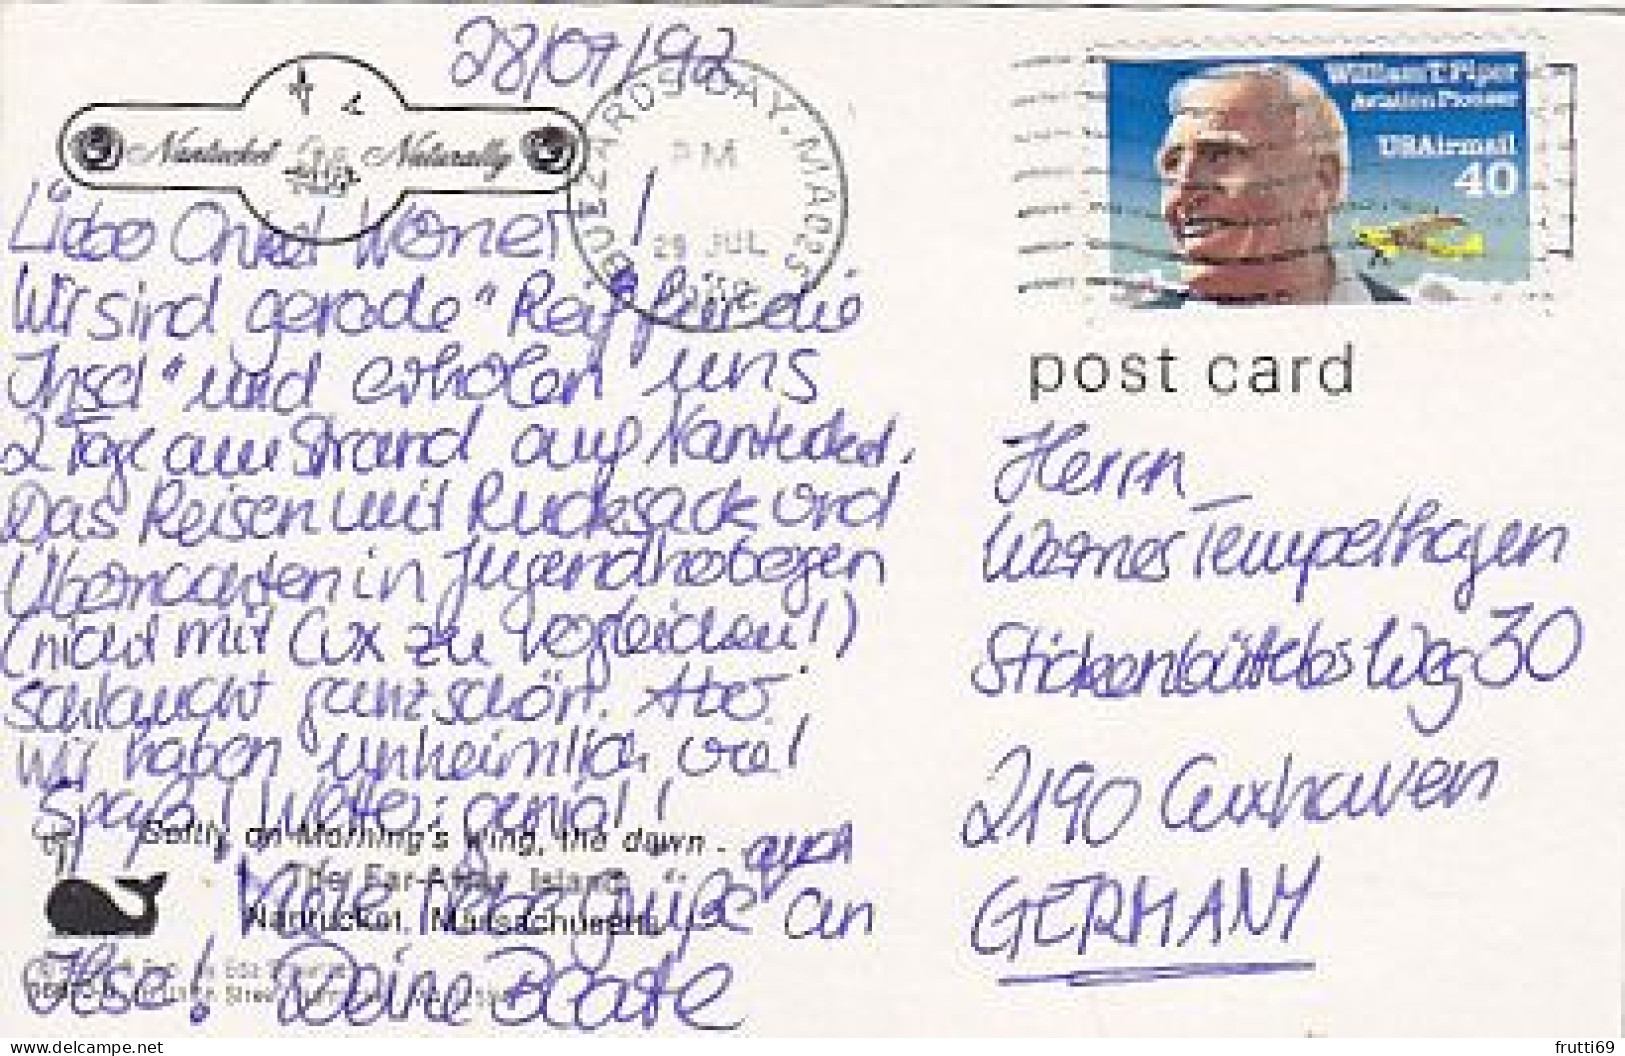 28/07/92
Nantucket Naturally
BUZZARDS BAY, MA 025
PM
29 JUL
William T. Piper
Aviation Pioneer
USAirmail
40
post card
Liebe Onkel Werner!
Wir sind gerade "Reif für die
Insel" und erholen uns
2 Tage am Strand auf Nantucket.
Das Reisen mit Rucksack und
Übernachten in Jugendherbergen
(nicht mit Cux zu vergleichen!)
schlaucht ganz schön. Aber
wir haben unheimlich viel
Spaß! Wetter: genial!
Viele liebe Grüße auch an
Ilse! Deine Beate
Herrn
Werner Tempelhagen
Stickenbütteler Weg 30
2190 Cuxhaven
GERMANY
Softly, on Morning's wing, the dawn
The Far-Away Island
Nantucket, Massachusetts
frutti69